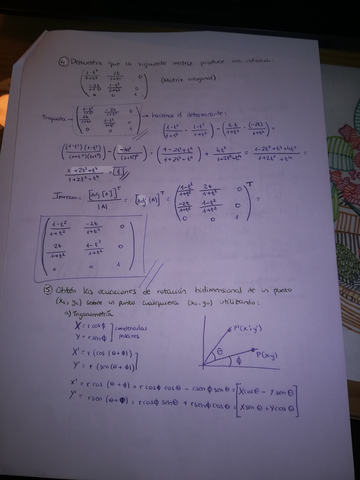 4) Demuestra que la siguiente matriz produce una rotación:
( 1-t²/1+t² 2t/1+t² 0
-2t/1+t² 1-t²/1+t² 0
0 0 1 ) (Matriz original)
( 1-t²/1+t² -2t/1+t² 0
2t/1+t² 1-t²/1+t² 0
0 0 1 ) → hacemos el determinante:
(1-t²/1+t² · 1-t²/1+t²) - (2t/1+t² · (-2t)/1+t²) =
((1-t²)(1-t²)/(1+t²)(1+t²)) - (-4t²/(1+t²)²) = (1-2t²+t⁴/1+2t²+t⁴) + 4t²/1+2t²+t⁴ = 1-2t²+t⁴+4t²/1+2t²+t⁴ =
1+2t²+t⁴/1+2t²+t⁴ = 1
Inversa = [Adj[A]]ᵀ/|A| = [Adj(A)]ᵀ = ( 1-t²/1+t² 2t/1+t² 0
-2t/1+t² 1-t²/1+t² 0
0 0 1 )ᵀ =
( 1-t²/1+t² -2t/1+t² 0
2t/1+t² 1-t²/1+t² 0
0 0 1 )
5) Obtén las ecuaciones de rotación bidimensional de un punto
sobre un punto cualquiera utilizando:
a) Trigonometría
X = r cosϕ
Y = r senϕ ] coordenadas polares
X' = r (cos(θ+ϕ))
Y' = r (sen(θ+ϕ))
P'(x',y')
P(x,y)
θ
ϕ
X' = r cos(θ+ϕ) = r cosϕ cosθ - r senϕ senθ = [X cosθ - Y senθ
Y' = r sen(θ+ϕ) = r cosϕ senθ + r senϕ cosθ = X senθ + Y cosθ]